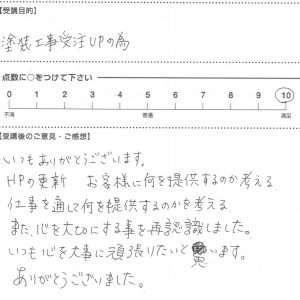 【受講目的】
塗装工事受注UPの為
点数に○をつけて下さい
0 1 2 3 4 5 6 7 8 9 10
不満 普通 満足
【受講後のご意見・ご感想】
いつもありがとうございます。
HPの更新 お客様に何を提供するのか考える
仕事を通して何を提供するのかを考える
また、心を大切にする事を再認識しました。
いつも心を大事に頑張りたいと思います。
ありがとうございました。